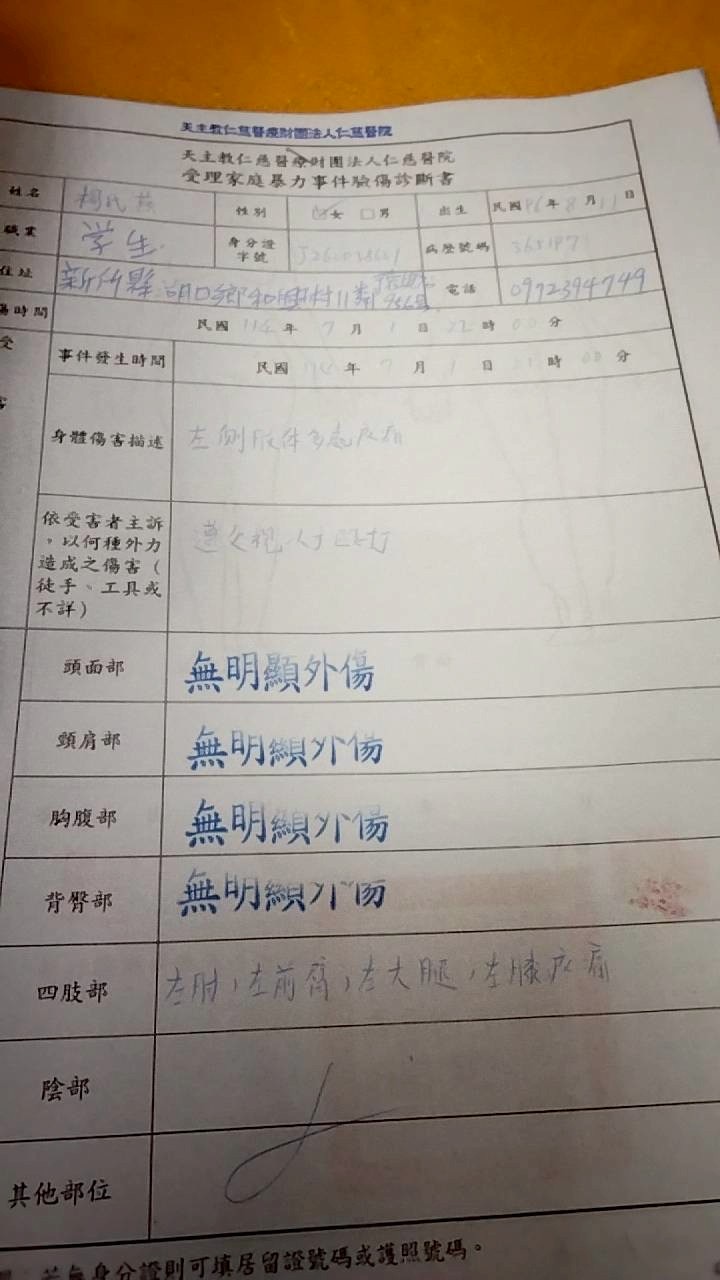 天主教仁慈醫療財團法人仁慈醫院
天主教仁慈醫療財團法人仁慈醫院
受理家庭暴力事件驗傷診斷書
姓名 性別 女 男 出生 民國 86 年 8 月 11 日
職業 学生 身分證字號 病歷號碼
住址 新竹縣湖口鄉 電話 0972394749
傷時間 民國 114 年 7 月 1 日 22 時 00 分
受
事件發生時間 民國 年 7 月 1 日 時 分
身體傷害描述 左側肢体多處疼痛
依受害者主訴
，以何種外力
造成之傷害（
徒手、工具或
不詳） 遭父親
頭面部 無明顯外傷
頸肩部 無明顯外傷
胸腹部 無明顯外傷
背臀部 無明顯外傷
四肢部 左肘，左前臂，左大腿，左膝疼痛
陰部
其他部位
若無身分證則可填居留證號碼或護照號碼。